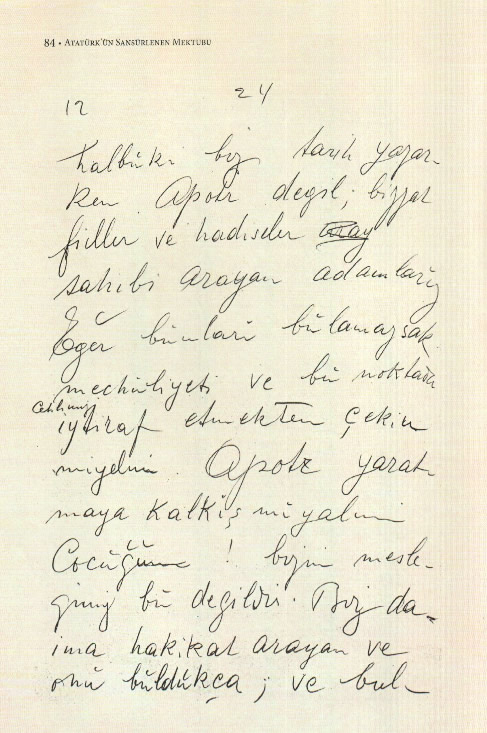 84 • ATATÜRK'ÜN SANSÜRLENEN MEKTUBU
24
12
halbuki biz tarih yazar-
ken Apotr degil; bizzat
fiiller ve hadiseler aray
sahibi arayan adamlarız
Eğer bunları bulamazsak
mechuliyeti ve bu noktada
cehlimizi
iytiraf etmekten çekin
miyelim. Apotr yarat-
maya kalkışmıyalım
Çocuğum ! bizim mesle-
gimiz bu degildir. Biz da-
ima hakikat arayan ve
onu buldukca ; ve bul-